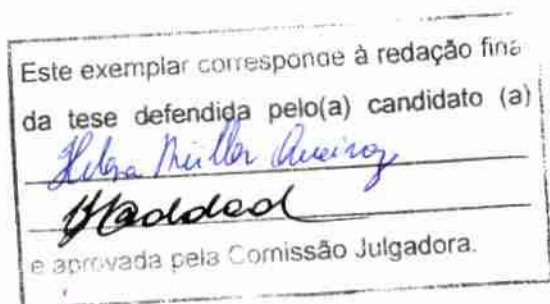 Este exemplar corresponde à redação fina
da tese defendida pelo(a) candidato (a)
Helena Müller Queiroz
Haddad
e aprovada pela Comissão Julgadora.